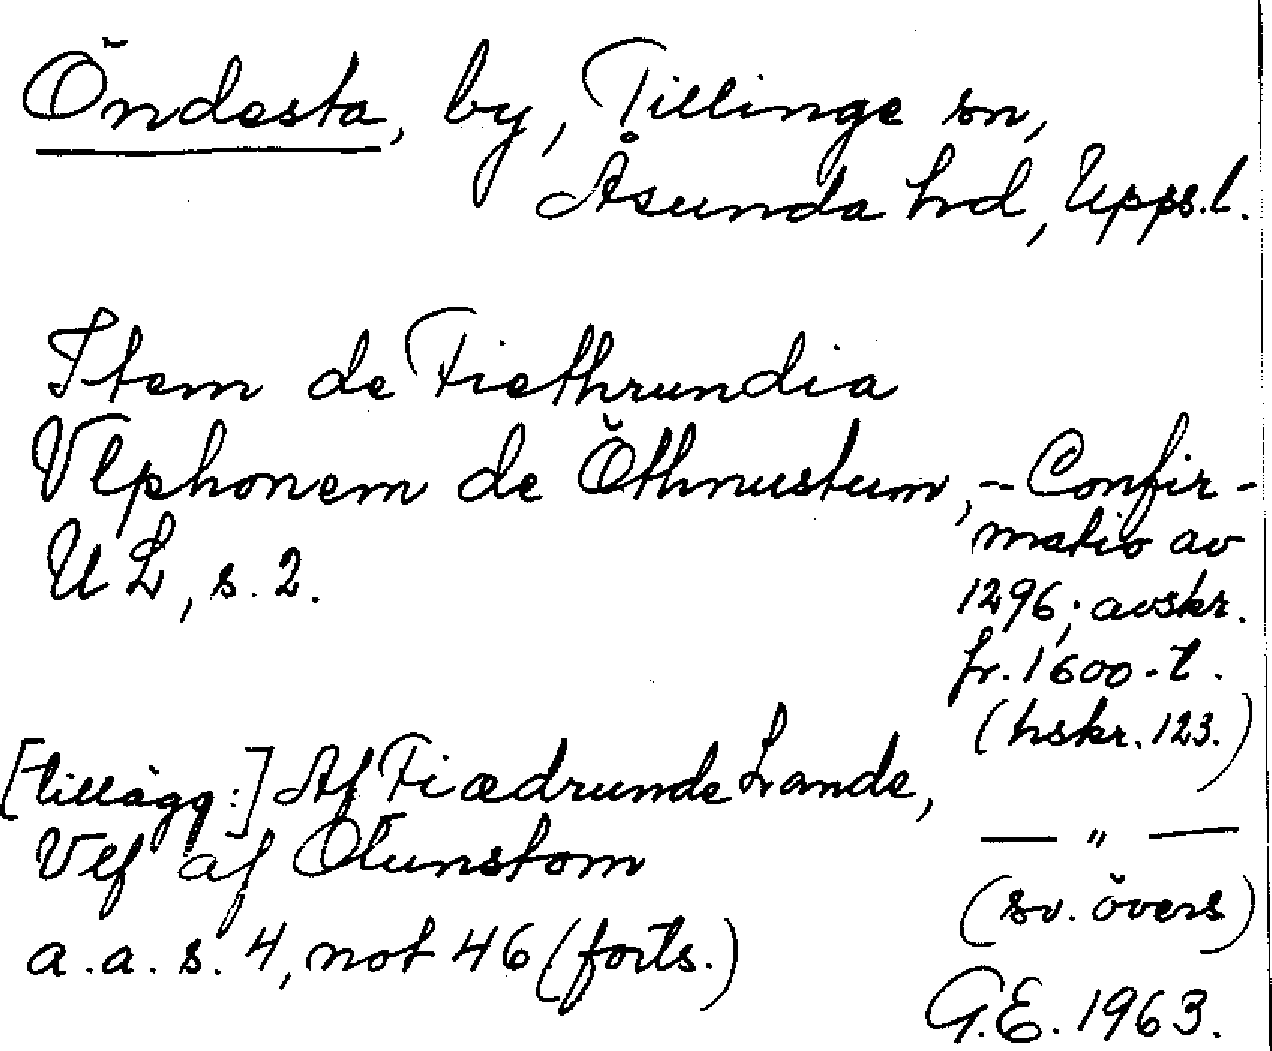 Öndesta, by, Tillinge sn,
Åsunda hd, Upps.l.
Item de Fiethrundia
Vlphonem de Öthnustum, - Confir-
matio av
UL, s. 2.
1296; avskr.
fr. 1600-t.
(hskr. 123.)
[tillägg:] Af Fiædrunde Lande,
Vlf af Ötunstom
— " —
(sv. övers)
a.a. s. 4, not 46 (forts.)
G.E. 1963.